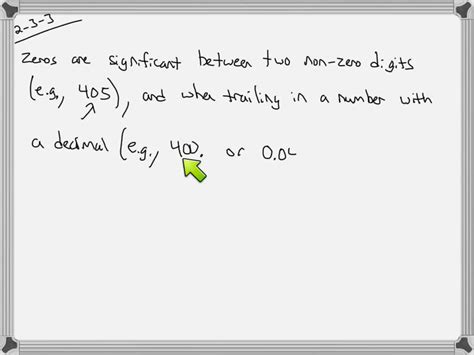 2-3-3
Zeros are significant between two non-zero digits
(e.g., 405), and when trailing in a number with
a decimal (e.g., 400. or 0.04